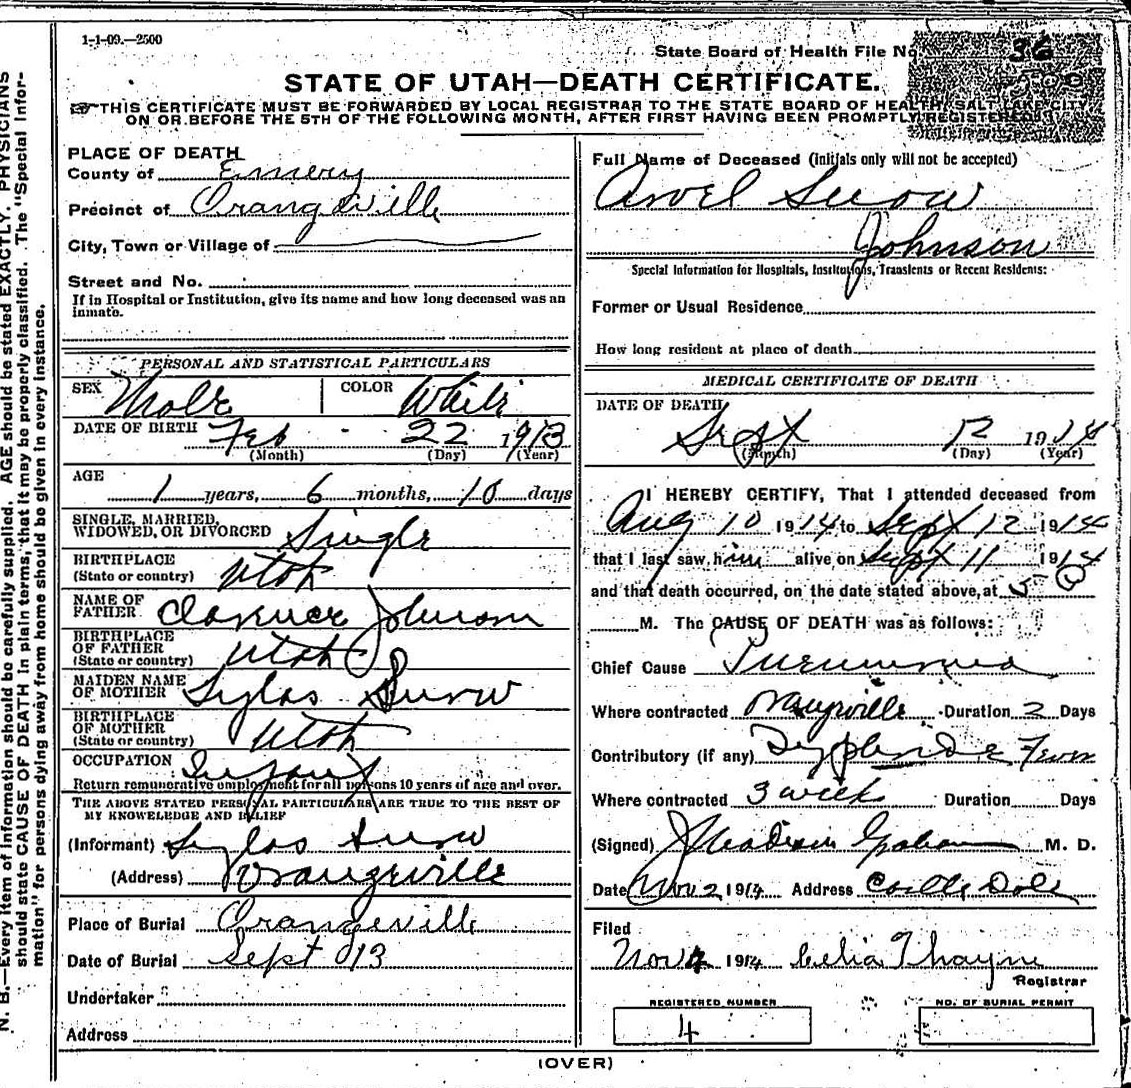 1-1-09.—2500
State Board of Health File No. 36
STATE OF UTAH—DEATH CERTIFICATE.
THIS CERTIFICATE MUST BE FORWARDED BY LOCAL REGISTRAR TO THE STATE BOARD OF HEALTH, SALT LAKE CITY
ON OR BEFORE THE 5TH OF THE FOLLOWING MONTH, AFTER FIRST HAVING BEEN PROMPTLY REGISTERED
N. B.—Every item of information should be carefully supplied. AGE should be stated EXACTLY. PHYSICIANS
should state CAUSE OF DEATH in plain terms, that it may be properly classified. The "Special Infor-
mation" for persons dying away from home should be given in every instance.
PLACE OF DEATH
County of Emery
Precinct of Orangeville
City, Town or Village of
Street and No.
If in Hospital or Institution, give its name and how long deceased was an
inmate.
PERSONAL AND STATISTICAL PARTICULARS
SEX Male COLOR White
DATE OF BIRTH Feb 22 1913
(Month) (Day) (Year)
AGE
1 years, 6 months, 10 days
SINGLE, MARRIED,
WIDOWED, OR DIVORCED Single
BIRTHPLACE
(State or country) Utah
NAME OF
FATHER Clarence Johnson
BIRTHPLACE
OF FATHER
(State or country) Utah
MAIDEN NAME
OF MOTHER Sylas Snow
BIRTHPLACE
OF MOTHER
(State or country) Utah
OCCUPATION Infant
Return remunerative employment for all persons 10 years of age and over.
THE ABOVE STATED PERSONAL PARTICULARS ARE TRUE TO THE BEST OF
MY KNOWLEDGE AND BELIEF
(Informant) Sylas Snow
(Address) Orangeville
Place of Burial Orangeville
Date of Burial Sept 13
Undertaker
Address
Full Name of Deceased (initials only will not be accepted)
Arvel Snow
Johnson
Special Information for Hospitals, Institutions, Transients or Recent Residents:
Former or Usual Residence
How long resident at place of death
MEDICAL CERTIFICATE OF DEATH
DATE OF DEATH
Sept 12 1914
(Month) (Day) (Year)
I HEREBY CERTIFY, That I attended deceased from
Aug 10 1914 to Sept 12 1914
that I last saw him alive on Sept 11 1914
and that death occurred, on the date stated above, at 5 a
M. The CAUSE OF DEATH was as follows:
Chief Cause Pneumonia
Where contracted Orangeville Duration 2 Days
Contributory (if any) Typhoide Fever
Where contracted 3 week Duration Days
(Signed) J Madison Graham M. D.
Date Nov 2 1914 Address Castle Dale
Filed
Nov 4 1914 Celia Thayn
Registrar
REGISTERED NUMBER
4
NO. OF BURIAL PERMIT
(OVER)